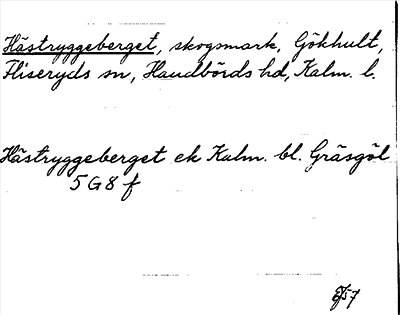 Hästryggeberget, skogsmark, Gökhult,
Fliseryds sn, Handbörds hd, Kalm. l.
Hästryggeberget ek Kalm. bl. Gräsgöl
5 G 8 f